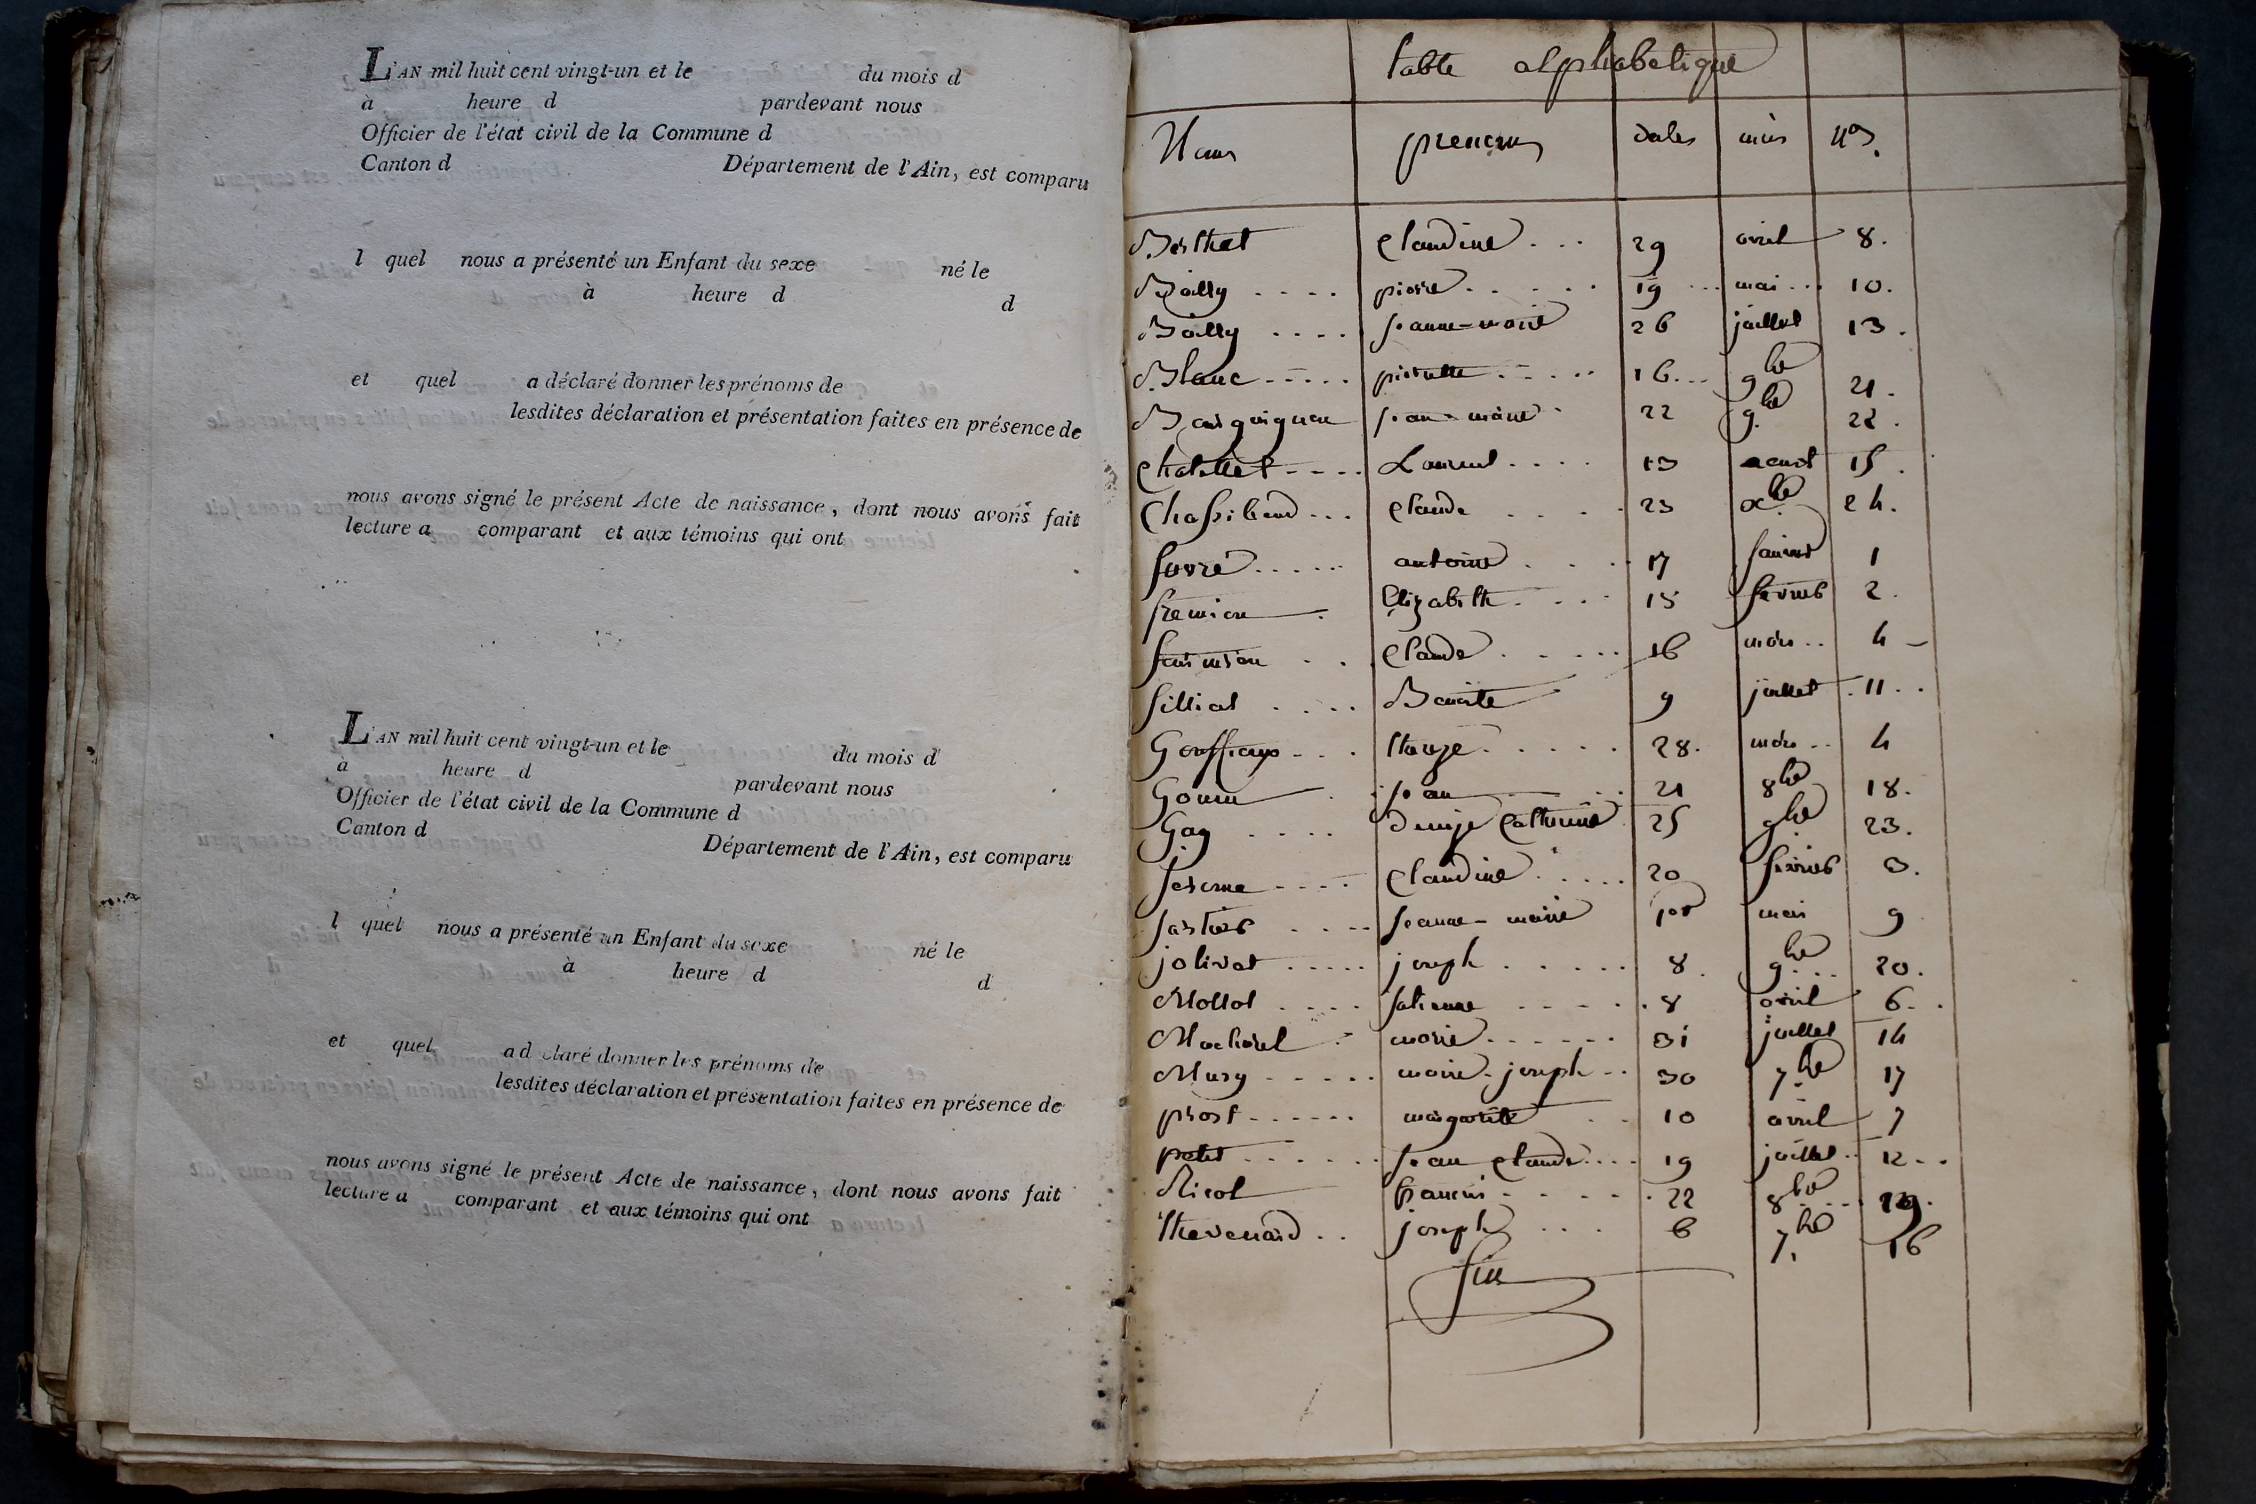 L'AN mil huit cent vingt-un et le du mois d
à heure d pardevant nous
Officier de l'état civil de la Commune d
Canton d Département de l'Ain, est comparu
l quel nous a présenté un Enfant du sexe né le
à heure d d
et quel a déclaré donner les prénoms de
lesdites déclaration et présentation faites en présence de
nous avons signé le présent Acte de naissance, dont nous avons fait
lecture a comparant et aux témoins qui ont
L'AN mil huit cent vingt-un et le du mois d
à heure d pardevant nous
Officier de l'état civil de la Commune d
Canton d Département de l'Ain, est comparu
l quel nous a présenté un Enfant du sexe né le
à heure d d
et quel a déclaré donner les prénoms de
lesdites déclaration et présentation faites en présence de
nous avons signé le présent Acte de naissance, dont nous avons fait
lecture a comparant et aux témoins qui ont
table alphabetique
Noms prenoms dates mois nos.
Berthet Claudine 29 avril 8.
Bailly pierre 19 mai 10.
Bailly jeanne-marie 26 juillet 13.
Blanc pierrette 16 9bre 21.
Bourguignon jean-marie 22 9bre 22.
Chatillet Laurent 13 aoust 15.
Chassiboud Claude 23 xbre 24.
favre antoine 17 janvier 1
fremion Elizabeth 15 fevrier 2.
Claude 16 mars 4
filliat Benoite 9 juillet 11
28. mars 4
jean 21 8bre 18.
Gay denize Catherine 25 9bre 23.
Claudine 20 fevrier 3.
jeanne-marie 1er mai 9
jolivat joseph 8 9bre 20.
Mollot fatienne 8 avril 6.
marie 31 juillet 14
Mury marie-joseph 30 7bre 17
prost margueritte 10 avril 7
petit jean Claude 19 juillet 12
Nicot francois 22 8bre 19.
thevenard joseph 6 7bre 16
fin